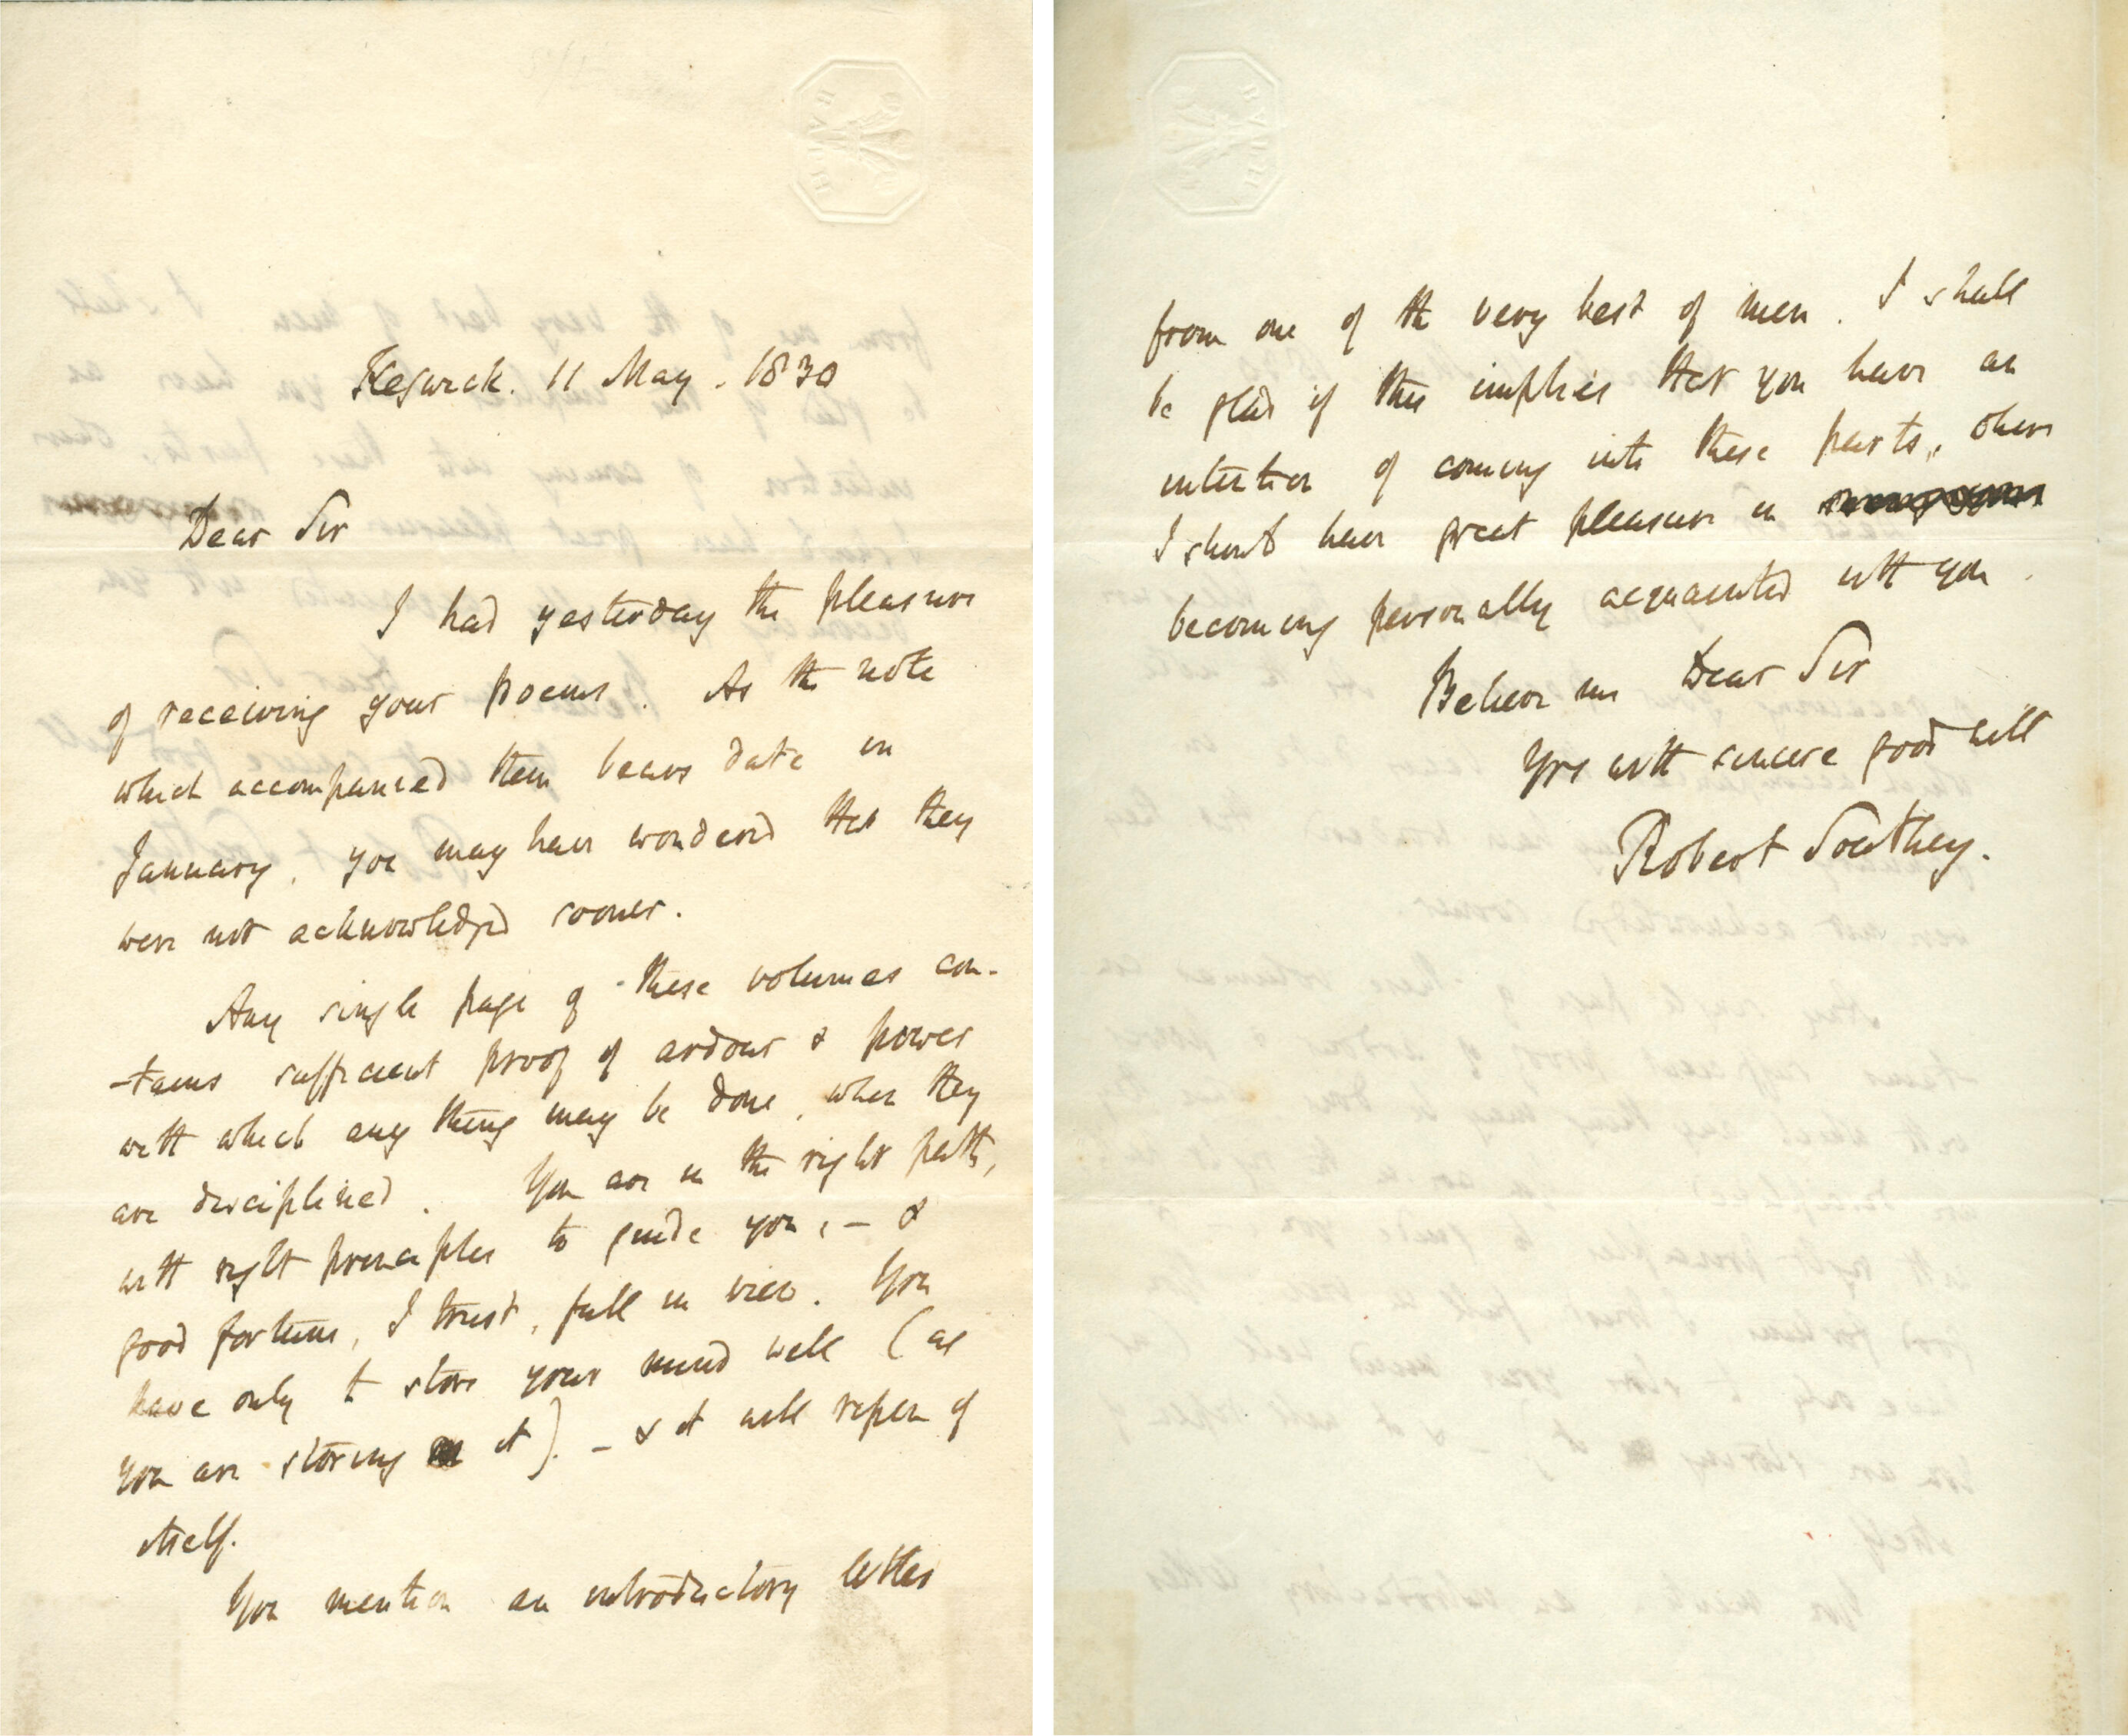 BATH
Keswick. 11 May. 1830
Dear Sir
I had yesterday the pleasure
of receiving your poems. As the note
which accompanied them bears date in
January, you may have wondered that they
were not acknowledged sooner.
Any single page of these volumes con-
-tains sufficient proof of ardour & power
with which any thing may be done, when they
are disciplined. You are in the right path,
with right principles to guide you, – &
good fortune, I trust, full in view. You
have only to store your mind well (as
you are storing it). – & it will ripen of
itself.
You mention an introductory letter
BATH
from one of the very best of men. I shall
be glad if this implies that you have an
intention of coming into these parts, where
I should have great pleasure in
becoming personally acquainted with you.
Believe me Dear Sir
Yrs with sincere good will
Robert Southey.